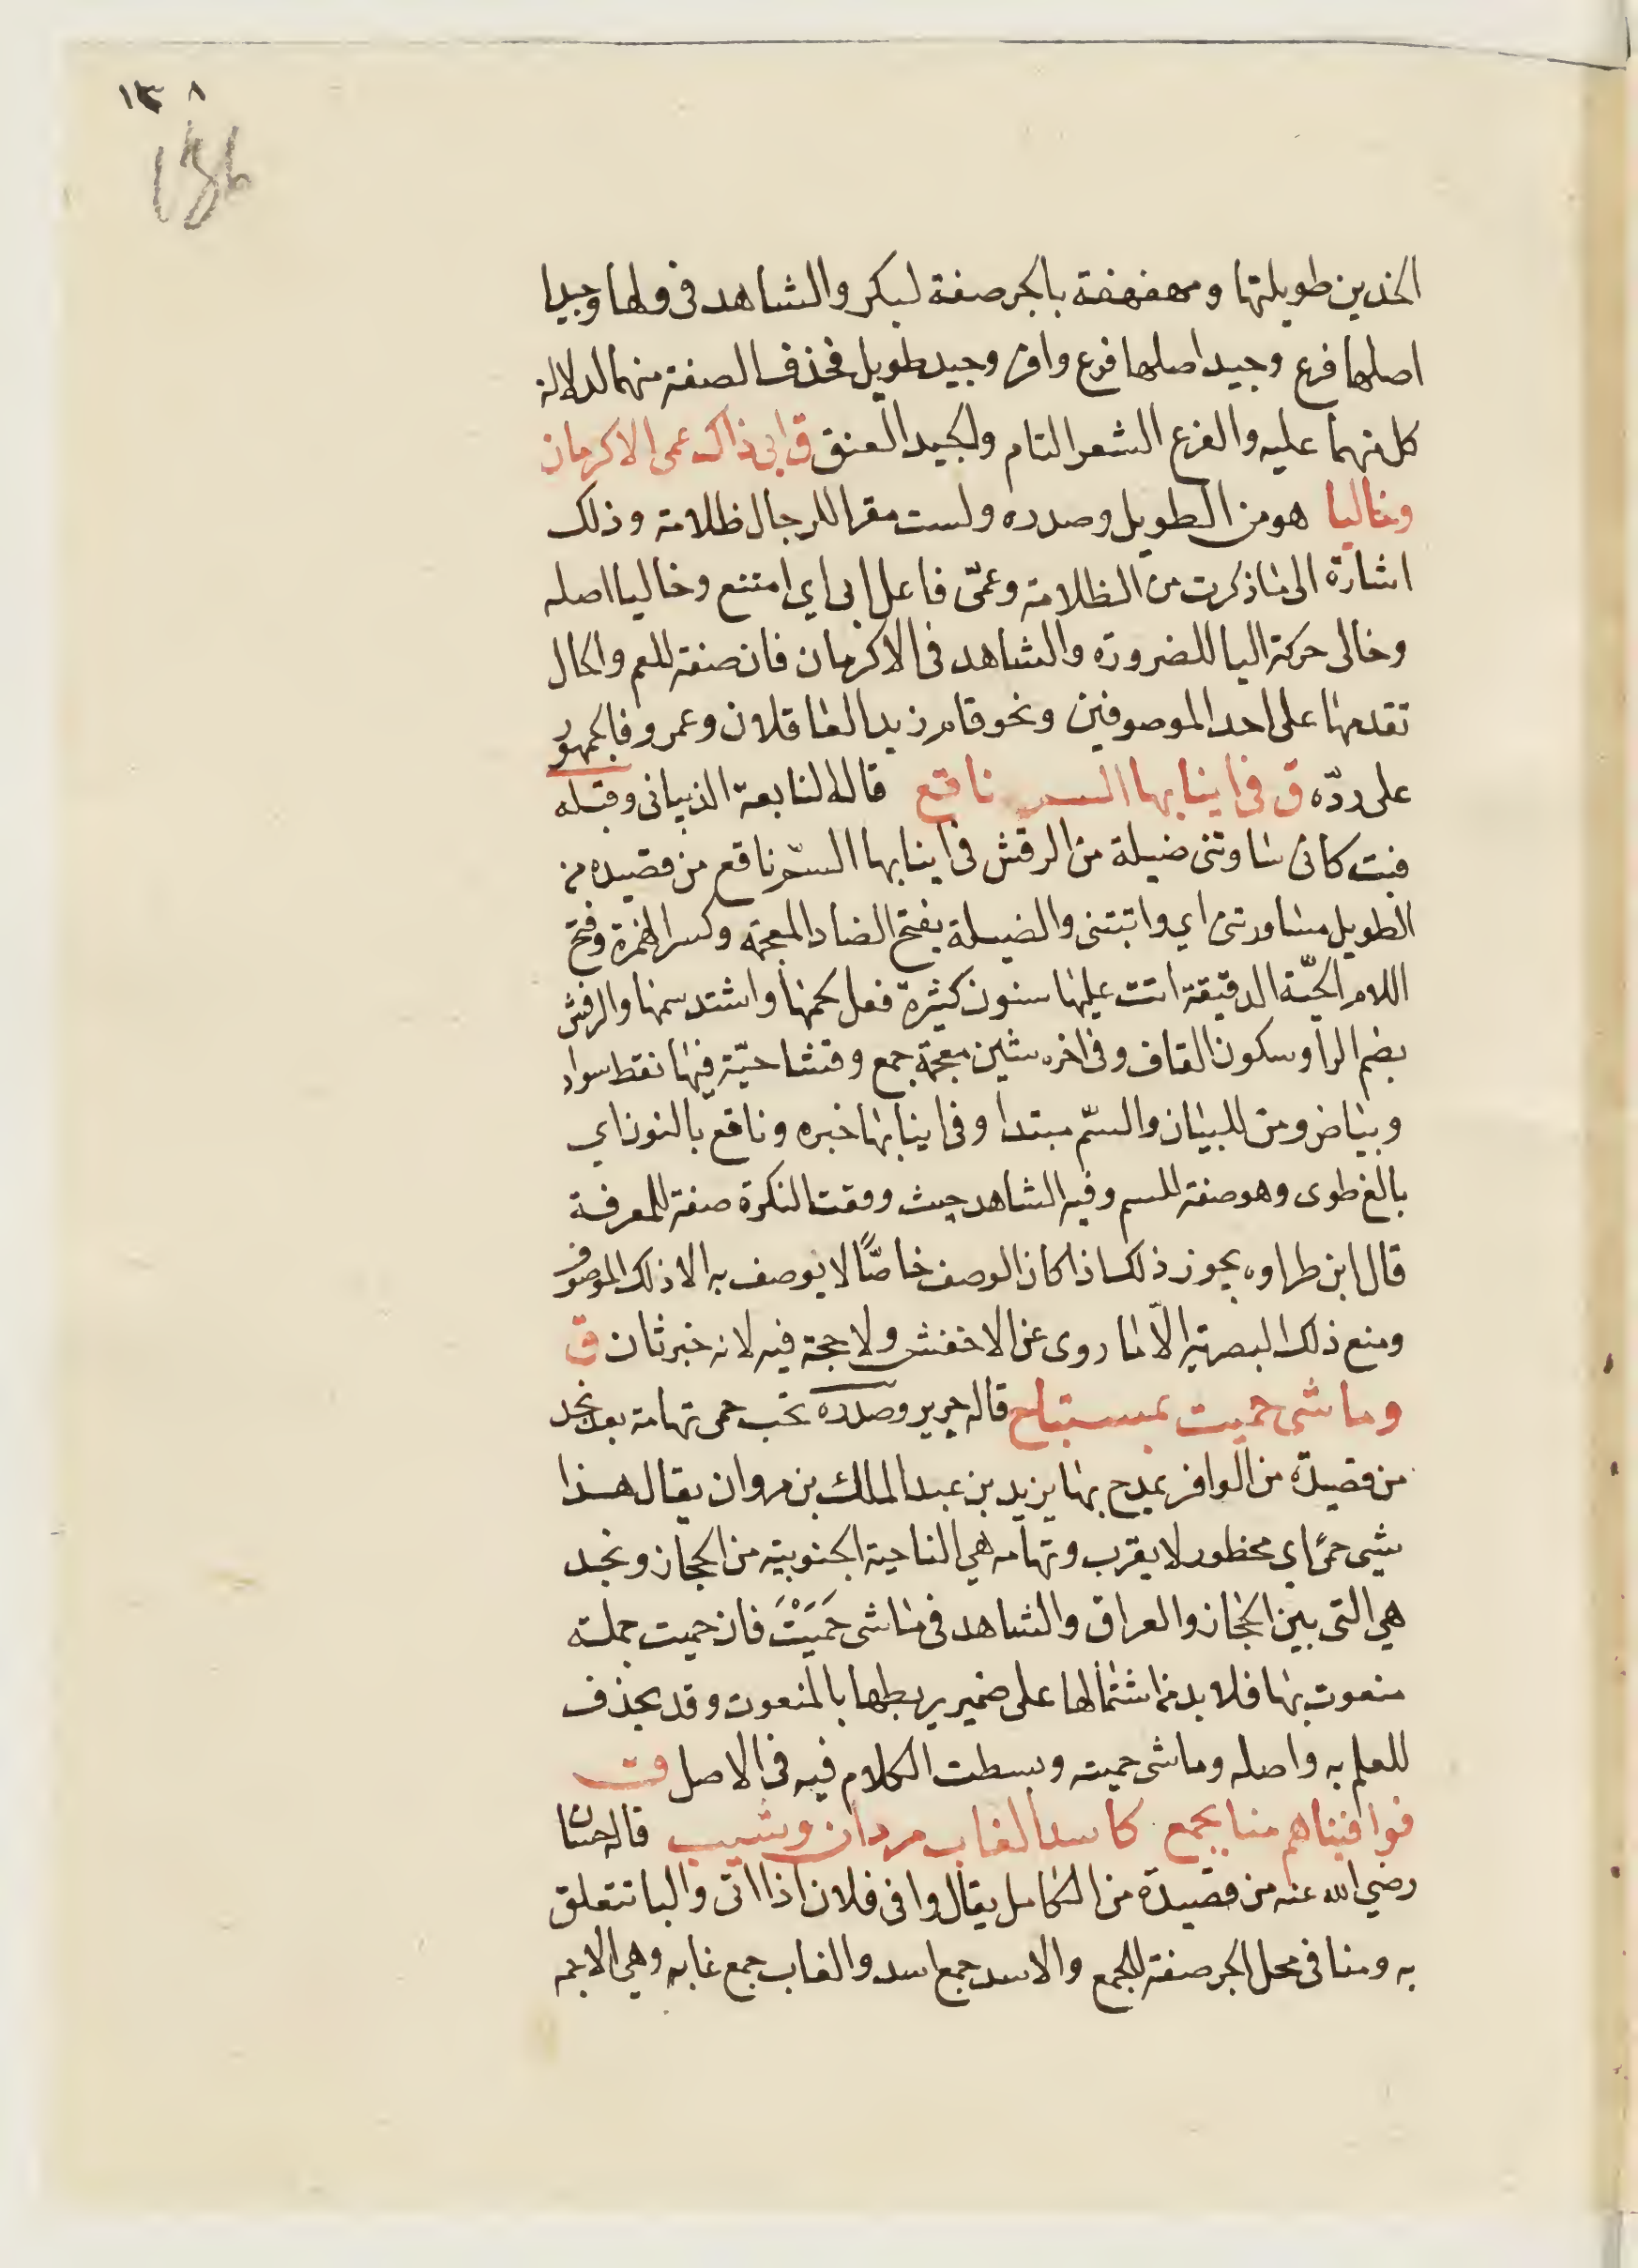 ١٣٨
الخدين طويلتها ومهفهفة بالجر صفة لبكر والشاهد فى ولها وجيدا
اصلها فرع وجيد اصلها فرع وافر وجيد طويل فحذف الصفة منهما لدلالة
كل منهما عليه والفرع الشعر التام والجيد العنق ق ابى ذاك عمى الاكرمان
وخاليا هو من الطويل وصدره ولست مقرا للرجال ظلامة وذلك
اشارة الى ما ذكرت من الظلامة وعمّى فاعل ابى اي امتنع وخاليا اصله
وخالى حركة اليا للضرورة والشاهد فى الاكرمان فان صفة للعم والخال
تقدمها على احد الموصوفين ونحو قام زيد العاقلان وعمرو فالجمهور
على ردّه ق فى اينابها السم ناقع قاله النابعة الذبيانى وقبله
فبت كانى ساوتنى ضيلة من الرقش فى اينابها السّم ناقع من قصيده من
الطويل مساورتنى اي واثبتنى والضيلة بفتح الضاد المعجمة وكسر الهمزة وفتح
اللام الحيّة الدقيقة اتت عليها سنون كثيرة فعل لحمها واشتد سمها والرقش
بضم الرا وسكون القاف وفى اخره شين معجمة جمع وقشا حيّة فيها نقط سواد
وبياض ومن للبيان والسّم مبتدا وفى اينابها خبره وناقع بالنون اي
بالغ طوى وهو صفة للسم وفيه الشاهد حيث وقعت النكرة صفة للمعرفة
قال ابن طراوه يجوز ذلك اذا كان الوصف خاصًّا لا يوصف به الا ذلك الموصوف
ومنع ذلك البصرية الّا ما روى عن الاخفش ولا حجة فيه لانه خبر ثان ق
وما شى حميت بمستباح قاله جرير وصدره نحب حمى تهامة بعد نجد
من قصيدة من الوافر يمدح بها يزيد بن عبد الملك بن مروان يقال هذا
شيى حمىً اي محظور لا يقرب وتهامه هي الناحية الجنوبية من الحجاز ونجد
هي التى بين الحجاز والعراق والشاهد فى ما شى حَمَيْتَ فان حميت جملة
منعوت بها فلا بد من اشتمالها على ضمير يربطها بالمنعوت وقد يحذف
للعلم به واصله وما شى حميته وبسطت الكلام فيه فى الاصل ق
فوافيناهم منا بجمع كاسد الغاب مردان وشيب قاله حسان
رضي الله عنه من قصيدة من الكامل يقال وافى فلان اذا اتى والبا تتعلق
به ومنا فى محل الجر صفة للجمع والاسد جمع اسد والغاب جمع غابه وهي الاجمه